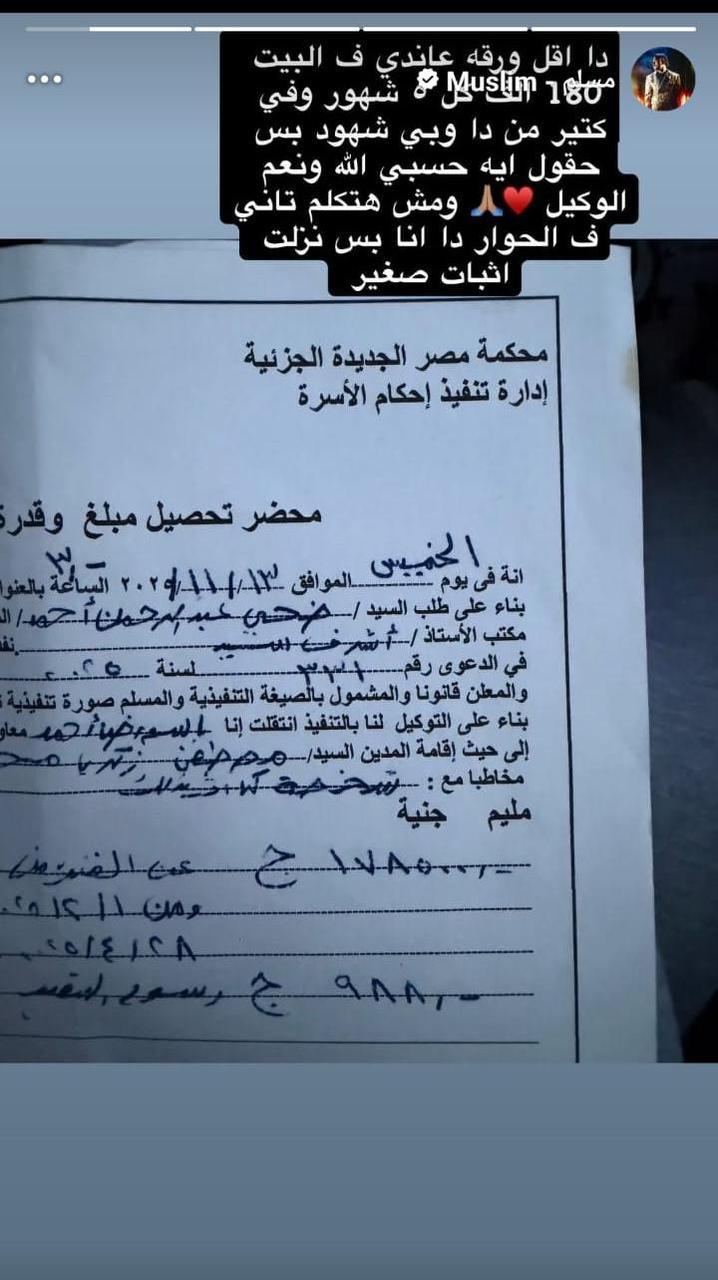 دا اقل ورقه عاندي ف البيت
180 الف كل شهور وفي
Muslim مسلم
كتير من دا وبي شهود بس
حقول ايه حسبي الله ونعم
الوكيل ♥️🙏🏽 ومش هتكلم تاني
ف الحوار دا انا بس نزلت
اثبات صغير
محكمة مصر الجديدة الجزئية
إدارة تنفيذ إحكام الأسرة
محضر تحصيل مبلغ وقدرة
انة فى يوم الخميس الموافق ١٣/١١/٢٠٢ الساعة ٣ بالعنوا
بناء على طلب السيد / ضحى عبد الرحمن أحمد / ال
مكتب الأستاذ / أشرف السيد
في الدعوى رقم ٣٣٢١ لسنة ٢٠٢٥
والمعلن قانونا والمشمول بالصيغة التنفيذية والمسلم صورة تنفيذية
بناء على التوكيل لنا بالتنفيذ انتقلت إنا أحمد معاو
إلى حيث إقامة المدين السيد/ مصطفى زكريا
مخاطبا مع :
مليم جنية
١٧٨٥٠٠,- ج عن
ومن ١/١٢
٢٠٢٥/٤/٢٨
٩٨٨,- ج رسوم